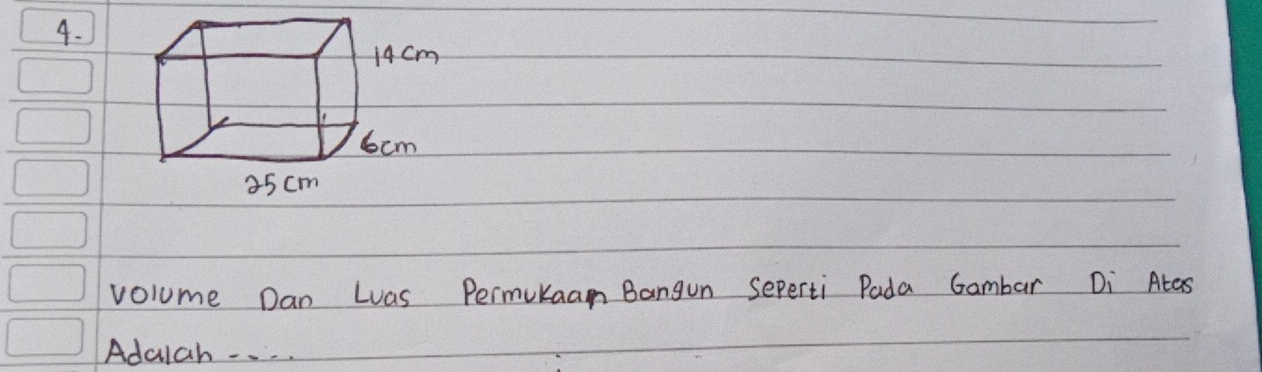 4.
14 cm
6cm
25 cm
Volume Dan Luas Permukaan Bangun Seperti Pada Gambar Di Atas
Adalah ....